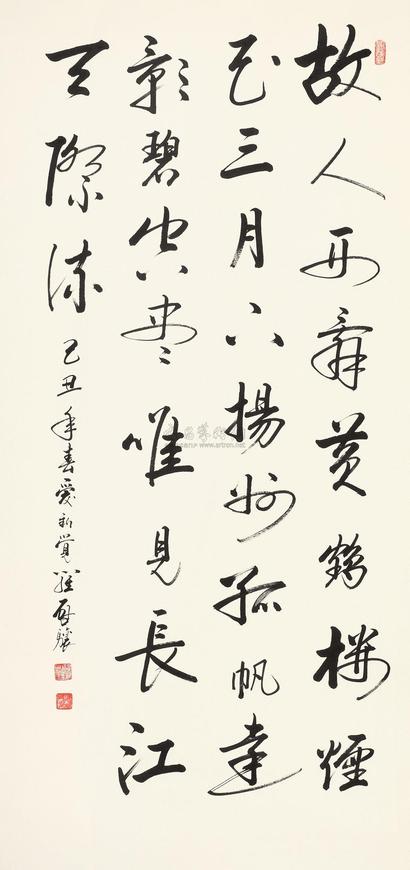 故人西辭黃鶴樓煙
花三月下揚州孤帆遠
影碧空盡唯見長江
天際流
己丑年春愛新覺羅啟驤